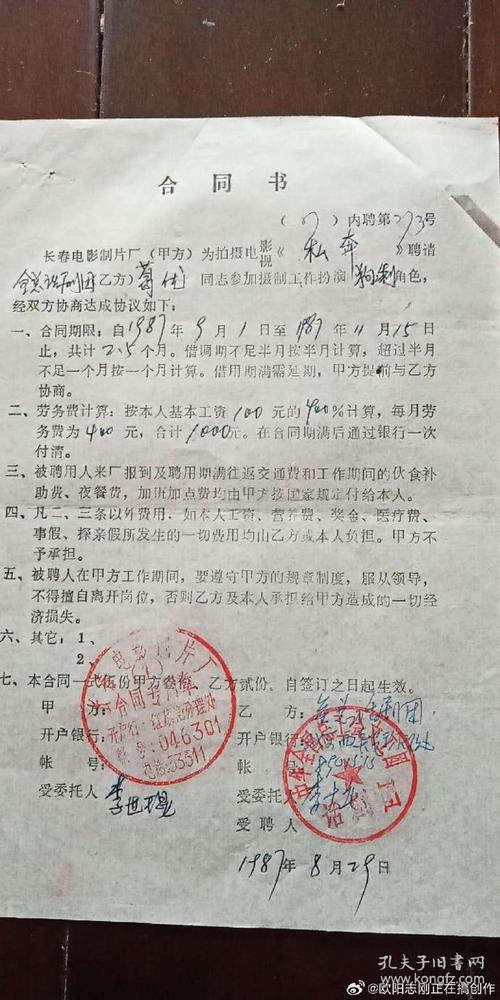 合同书
(87)内聘第273号
长春电影制片厂（甲方）为拍摄电影视《私奔》聘请
全总话剧团乙方）葛优同志参加摄制工作扮演 角色，
经双方协商达成协议如下：
一、合同期限：自1987年9月1日至1987年11月15日
止，共计2.5个月。借调期不足半月按半月计算，超过半月
不足一个月按一个月计算。借用期满需延期，甲方提前与乙方
协商。
二、劳务费计算：按本人基本工资100元的400%计算，每月劳
务费为400元，合计1000元。在合同期满后通过银行一次
付清。
三、被聘用人来厂报到及聘用期满往返交通费和工作期间的伙食补
助费、夜餐费，加班加点费均由甲方按国家规定付给本人。
四、凡二、三条以外费用．如本人工资、营养费、奖金、医疗费、
事假、探亲假所发生的一切费用均由乙方或本人负担。甲方不
予承担。
五、被聘人在甲方工作期间，要遵守甲方的规章制度，服从领导，
不得擅自离开岗位，否则乙方及本人承担给甲方造成的一切经
济损失。
六、其它：1、
2、
七、本合同一式伍份甲方叁份，乙方贰份．自签订之日起生效。
甲方：
开户银行：
帐号：
受委托人
电影制片厂
合同专用章
开户行：红旗街办理处
帐号：046301
电话：53511
乙方：全总话剧团
开户银行：
帐号：
受委托人
受聘人
话剧团
1987年8月29日
孔夫子旧书网
@欧阳志刚正在搞创作